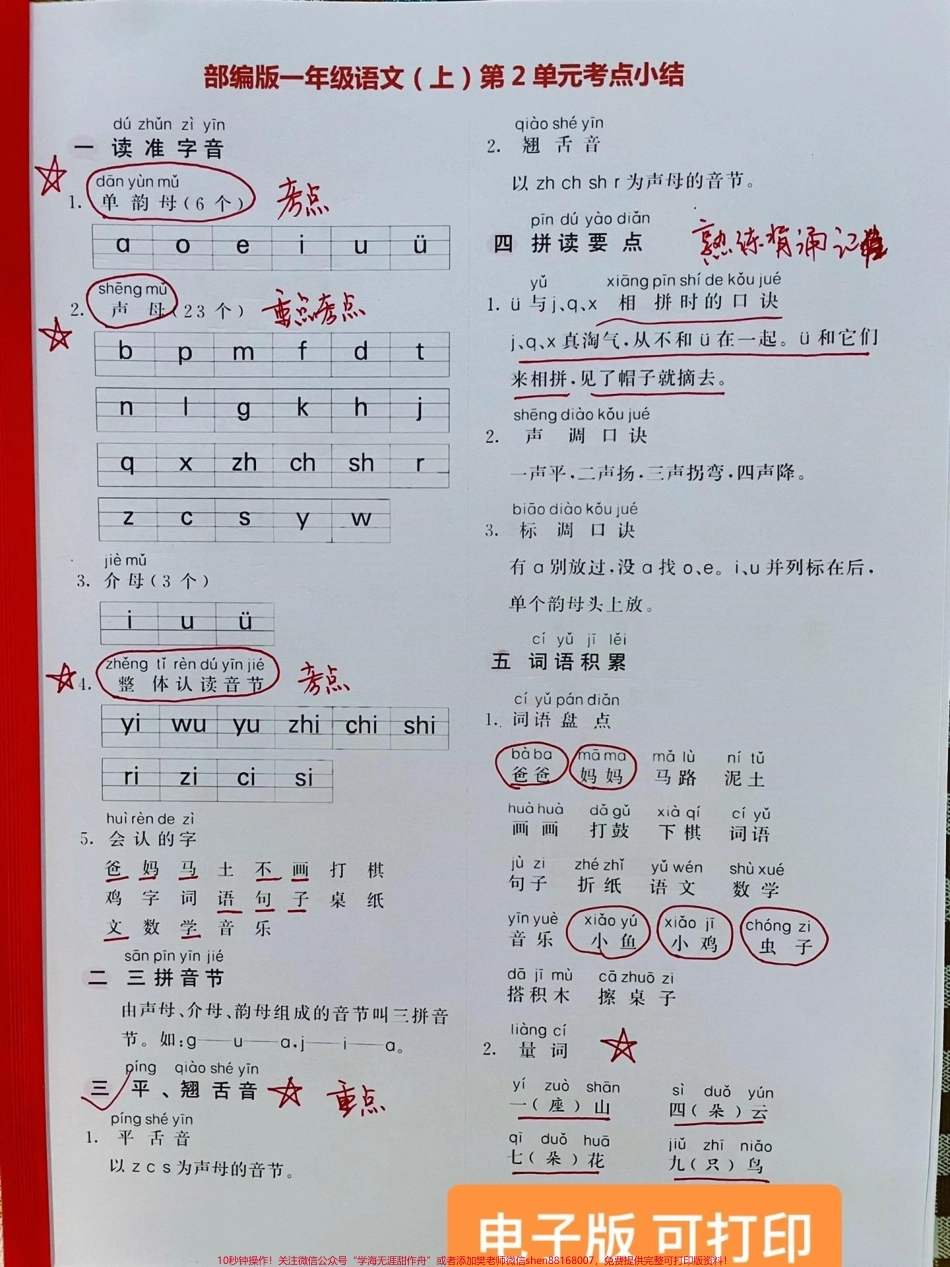 部编版一年级语文（上）第2单元考点小结
dú zhǔn zì yīn
一 读准字音
dān yùn mǔ
1. 单韵母（6个） 考点
ɑ o e i u ü
shēng mǔ
2. 声母（23个） 重点考点
b p m f d t
n l g k h j
q x zh ch sh r
z c s y w
jiè mǔ
3. 介母（3个）
i u ü
zhěng tǐ rèn dú yīn jié
4. 整体认读音节 考点
yi wu yu zhi chi shi
ri zi ci si
huì rèn de zì
5. 会认的字
爸 妈 马 土 不 画 打 棋
鸡 字 词 语 句 子 桌 纸
文 数 学 音 乐
sān pīn yīn jié
二 三拼音节
由声母、介母、韵母组成的音节叫三拼音
节。如:g——u——ɑ,j——i——ɑ。
píng qiào shé yīn
三 平、翘舌音 重点
píng shé yīn
1. 平舌音
以 z c s 为声母的音节。
qiào shé yīn
2. 翘舌音
以 zh ch sh r 为声母的音节。
pīn dú yào diǎn
四 拼读要点 熟练背诵记
yǔ xiāng pīn shí de kǒu jué
1. ü 与 j、q、x 相拼时的口诀
j、q、x 真淘气,从不和 ü 在一起。ü 和它们
来相拼,见了帽子就摘去。
shēng diào kǒu jué
2. 声调口诀
一声平,二声扬,三声拐弯,四声降。
biāo diào kǒu jué
3. 标调口诀
有 ɑ 别放过,没 ɑ 找 o、e。i、u 并列标在后,
单个韵母头上放。
cí yǔ jī lěi
五 词语积累
cí yǔ pán diǎn
1. 词语盘点
bà ba mā ma mǎ lù ní tǔ
爸爸 妈妈 马路 泥土
huà huà dǎ gǔ xià qí cí yǔ
画画 打鼓 下棋 词语
jù zi zhé zhǐ yǔ wén shù xué
句子 折纸 语文 数学
yīn yuè xiǎo yú xiǎo jī chóng zi
音乐 小鱼 小鸡 虫子
dā jī mù cā zhuō zi
搭积木 擦桌子
liàng cí
2. 量词
yí zuò shān sì duǒ yún
一（座）山 四（朵）云
qī duǒ huā jiǔ zhī niǎo
七（朵）花 九（只）鸟
电子版 可打印
10秒钟操作！关注微信公众号“学海无涯甜作舟”或者添加樊老师微信shen88168007，免费提供完整可打印版资料！